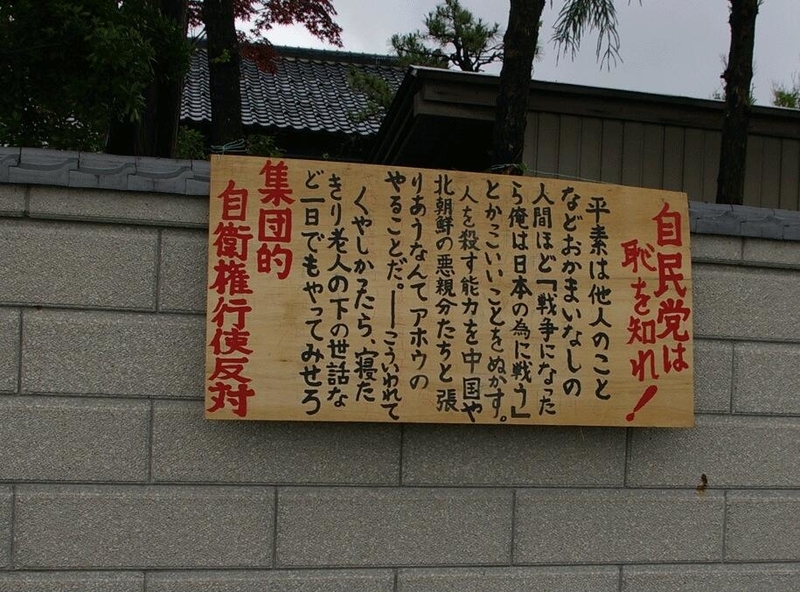 自民党は
恥を知れ!
平素は他人のこと
などおかまいなしの
人間ほど「戦争になった
ら俺は日本の為に戦う」
とかっこいいことをぬかす。
人を殺す能力を中国や
北朝鮮の悪親分たちと張
りあうなんてアホウの
やることだ。――こういわれて
くやしかったら、寝た
きり老人の下の世話な
ど一日でもやってみせろ
集団的
自衛権行使反対